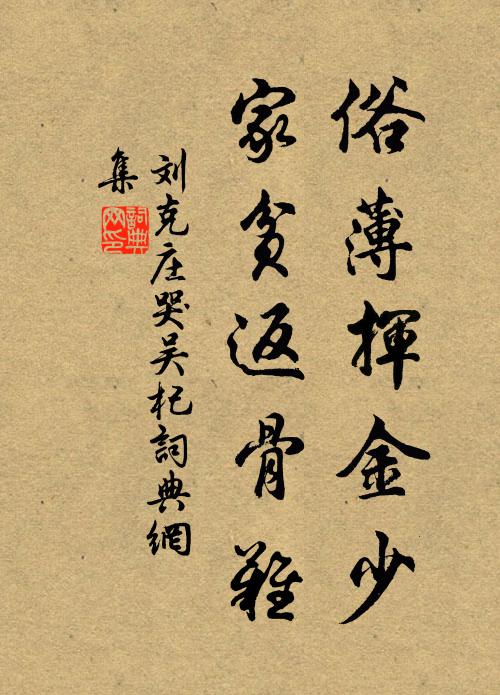 俗薄揮金少
家貧返骨難
刘克庄哭吴杞詞典網
集
詞典
网印